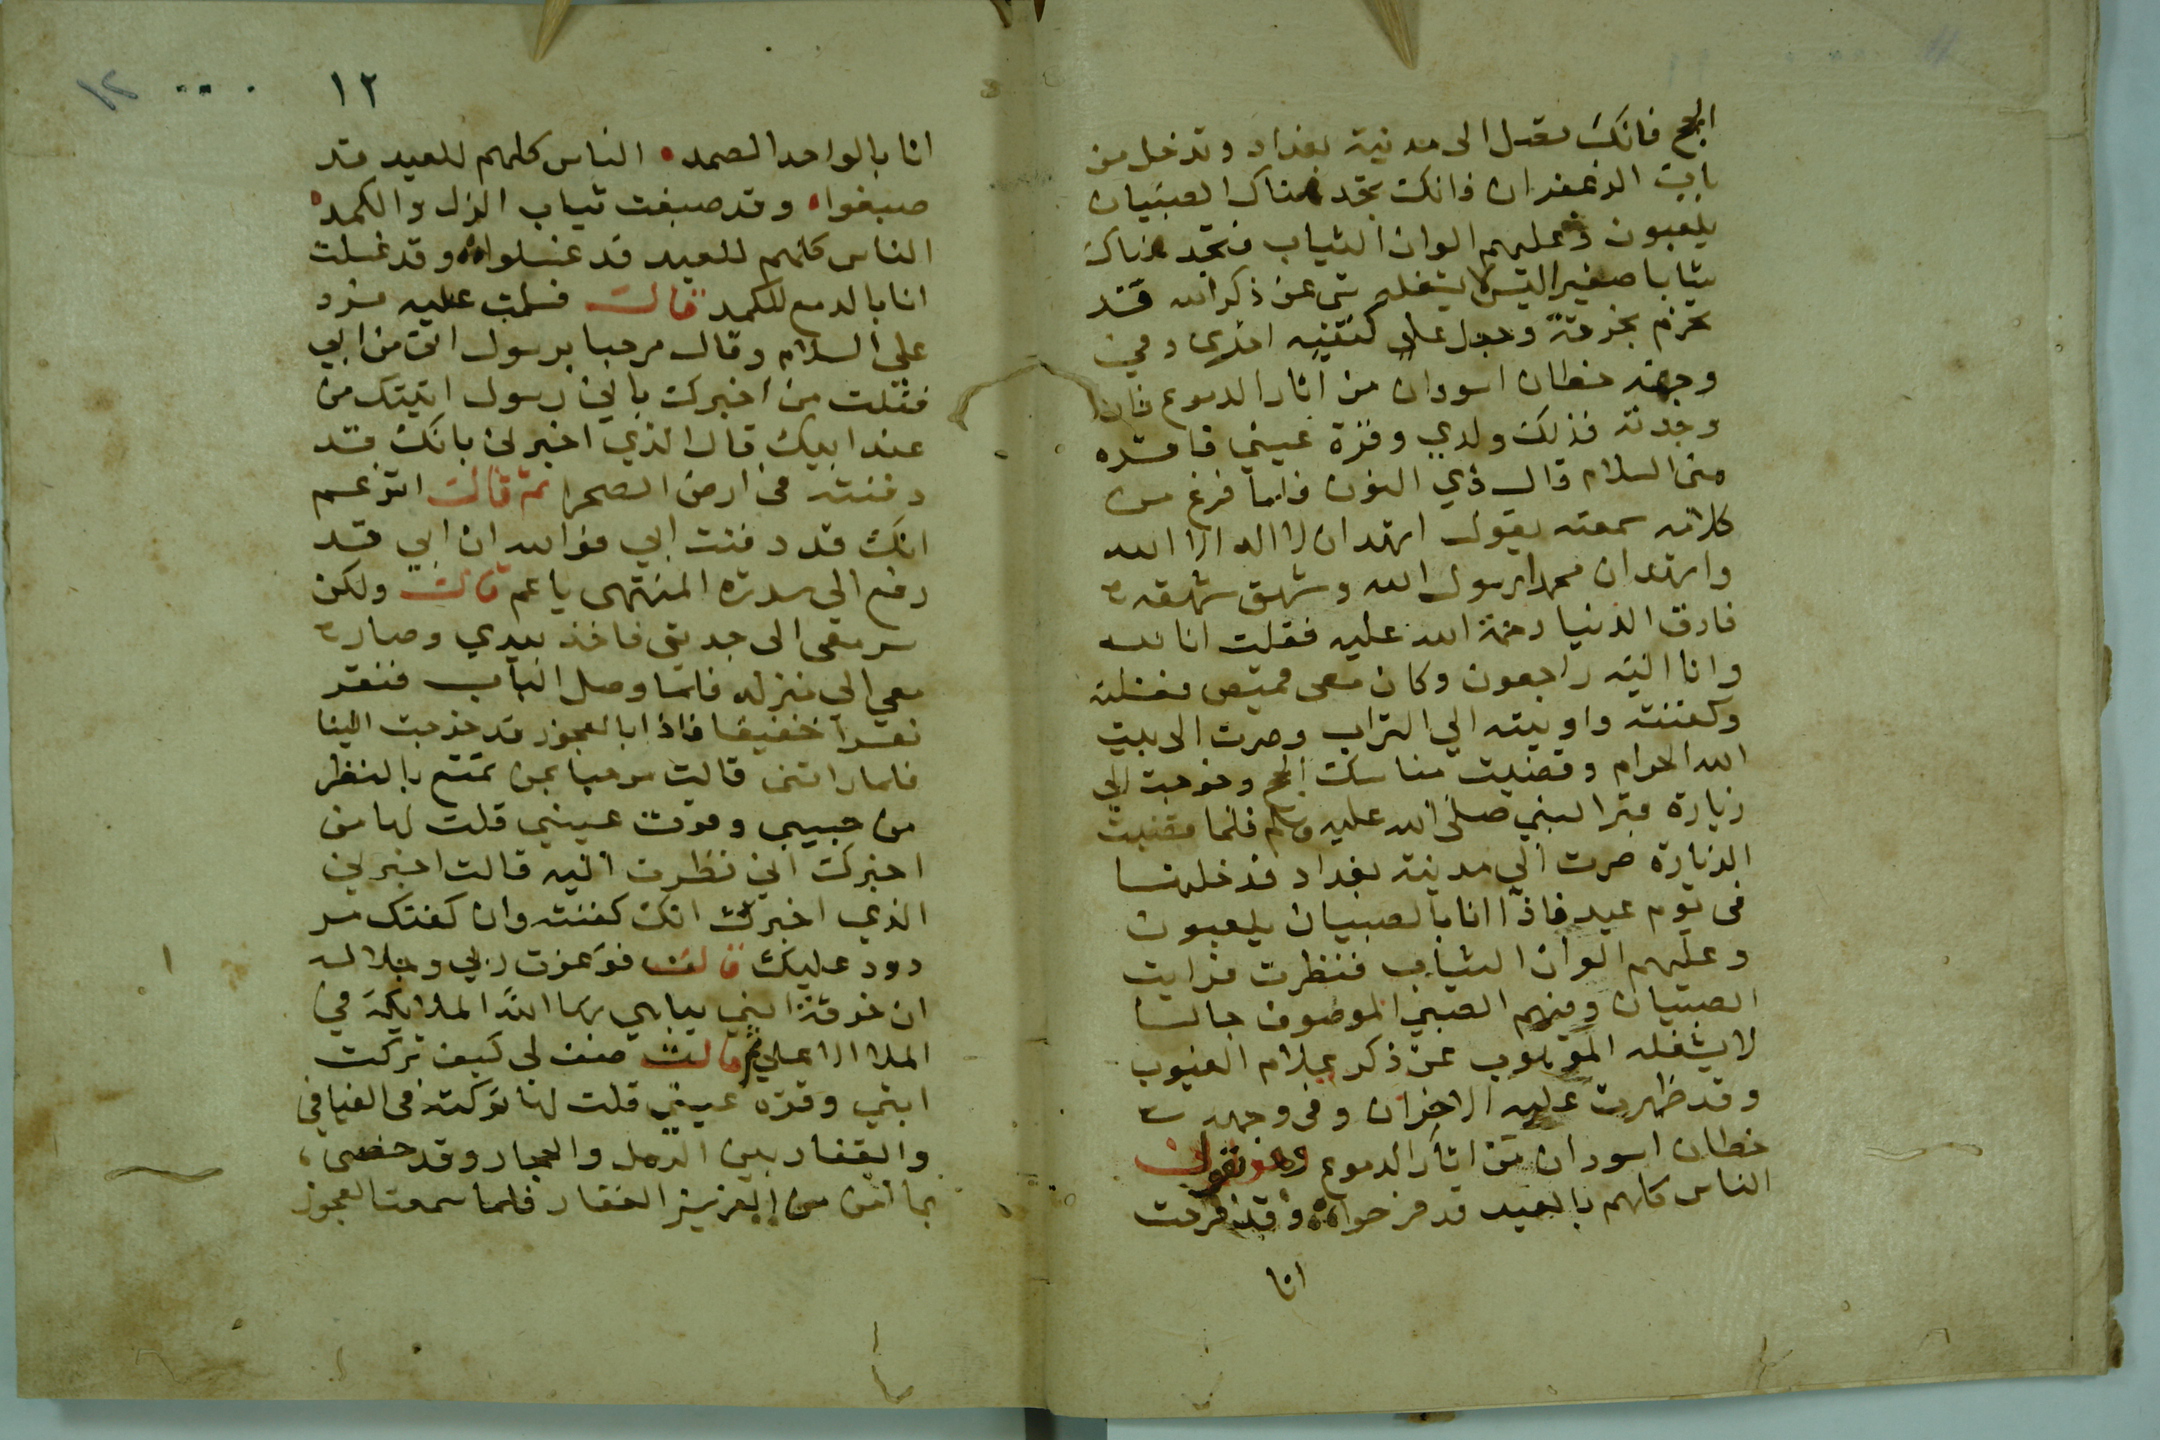 الحج فانك تصل الى مدنية بغداد وتدخل من
باب الزعفران فانك تجد هناك الصبيان
يلعبون وعليهم الوان الثياب فتجد هناك
شابا صغير السن لا يشغله شى عن ذكر الله قد
تحزم بخرقة وجعل على كتفيه اخرى وفي
وجهه خطان اسودان من اثار الدموع فان
وجدته فذلك ولدي وقرة عيني فاقره
منى السلام قال ذي النون فلما فرغ من
كلامه سمعته يقول اشهد ان لا اله الا الله
واشهد ان محمدا رسول الله وشهق شهقه
فارق الدنيا رحمة الله عليه فقلت انا لله
وانا اليه راجعون وكان معى قميص فغسلته
وكفنته واويته الي التراب وصرت الى بيت
الله الحرام وقضيت مناسك الحج وخرجت الي
زيارة قبر النبي صلى الله عليه وسلم فلما قضيت
الزيارة صرت الي مدينة بغداد فدخلتها
فى يوم عيد فاذا انا بالصبيان يلعبون
وعليهم الوان الثياب فنظرت فرايت
الصبيان وفيهم الصبي الموصوف جالسا
لا يشغله عن ذكر علام الغيوب
وقد ظهرت عليه الاحزان وفى وجهه
خطان اسودان من اثار الدموع وهو يقول
الناس كلهم بالعيد قد فرحواه وقد فرحت
انا
١٢
انا بالواحد الصمد ه الناس كلهم للعيد قد
صبغواه وقد صبغت ثياب الذل والكمد ه
الناس كلهم للعيد قد غسلواه وقد غسلت
انا بالدمع للكمد قالت فسلمت عليه فرد
علي السلام وقال مرحبا برسول اتى من ابي
فقلت من اخبرك باني رسول اتيتك من
عند ابيك قال الذي اخبرنى بانك قد
دفنته فى ارض الصحرا ثم قالت اتزعم
انك قد دفنت ابي فوالله ان ابي قد
رفع الي سدرة المنتهى يا عم قالت ولكن
سر معى الى جدتى فاخذ بيدي وصار
معي الي منزله فلما وصل الباب فنقر
نقرا خفيفا فاذا بالعجوز قد خرجت الينا
فلما راتنى قالت مرحبا بمن تمتع بالنظر
من حبيبى وقرت عيني قلت لها من
اخبرك اني نظرت اليه قالت اخبرني
الذي اخبرك انك كفنته وان كفنك مر
دود عليك قالت فوعزت ربي وجلاله
ان خرقة ابني يباهي بها الله الملايكة في
الملا الاعلي ثم قالت صف لى كيف تركت
ابني وقره عيني قلت لها تركته فى الفيافي
والقفار بين الرمل والحجار وقد حضى
بما امن من العزيز الغفار فلما سمعت العجوز